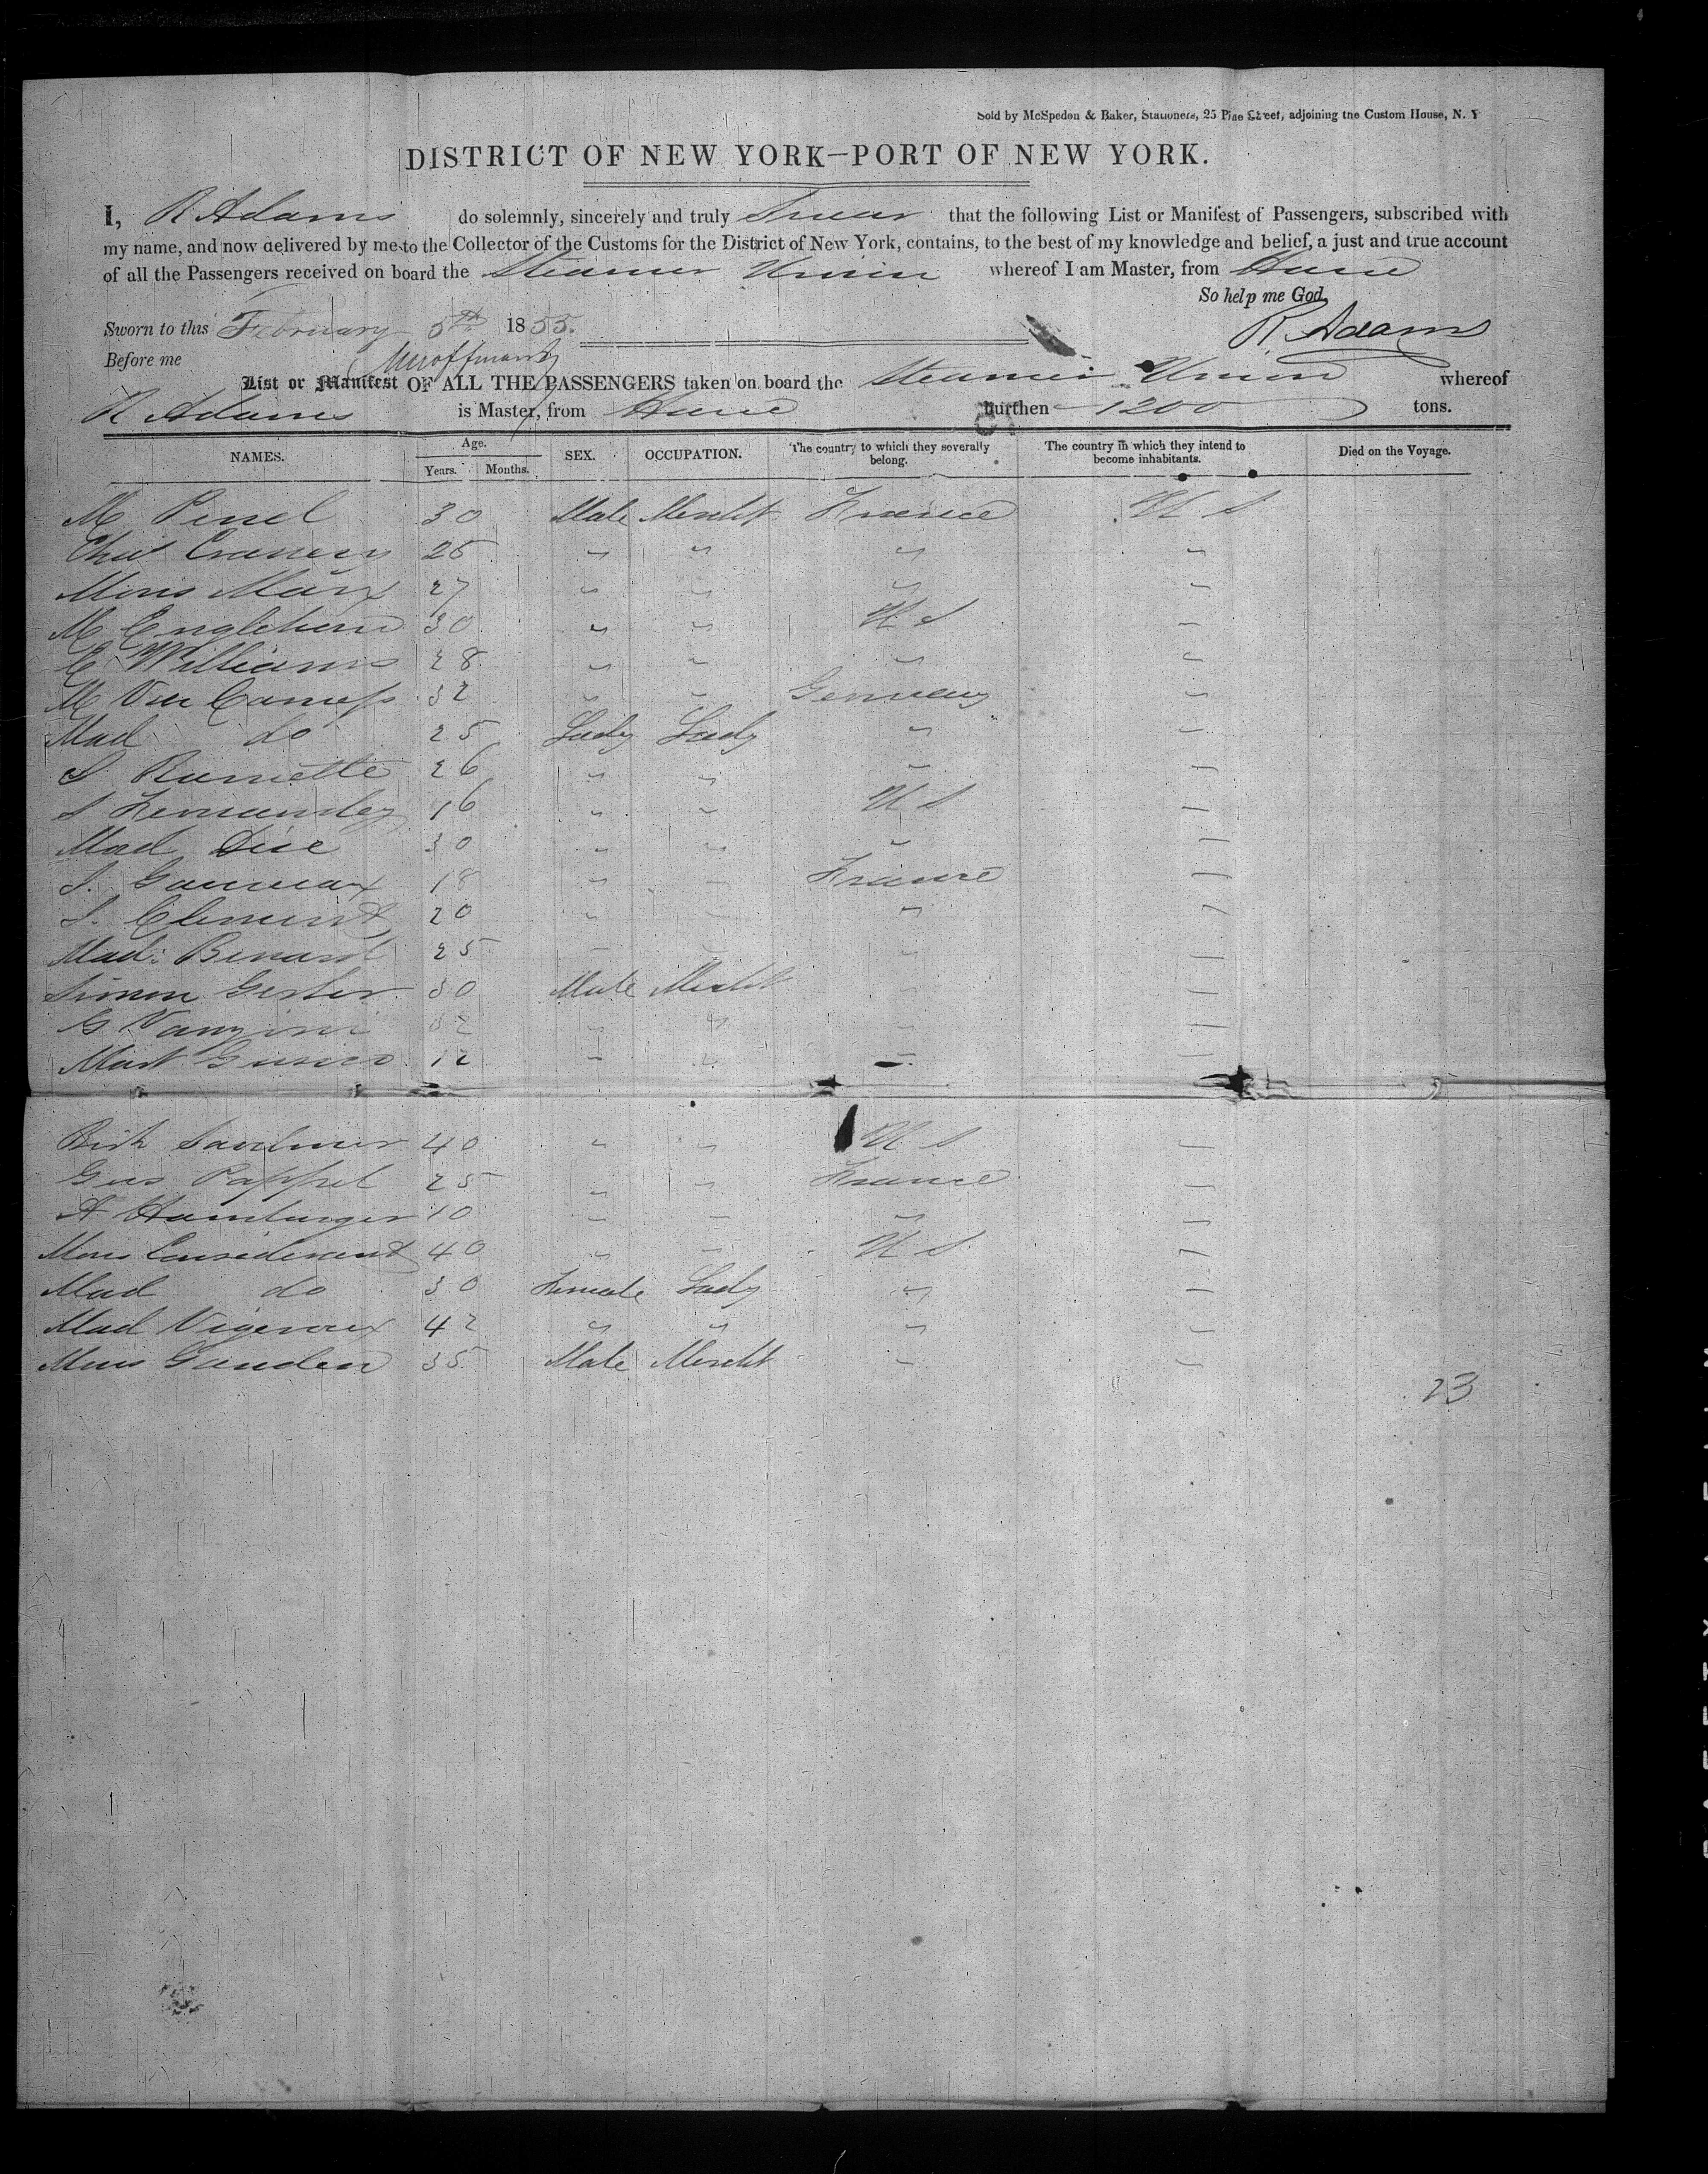 Sold by McSpedon & Baker, Stationers, 25 Pine Street, adjoining the Custom House, N. Y
DISTRICT OF NEW YORK—PORT OF NEW YORK.
I, R Adams do solemnly, sincerely and truly Swear that the following List or Manifest of Passengers, subscribed with
my name, and now delivered by me to the Collector of the Customs for the District of New York, contains, to the best of my knowledge and belief, a just and true account
of all the Passengers received on board the Steamer Union whereof I am Master, from Havre
So help me God.
Sworn to this February 5th 1855. R. Adams
Before me
List or Manifest OF ALL THE PASSENGERS taken on board the Steamer Union whereof
R Adams is Master, from Havre burthen 1200 tons.
NAMES. Age. Years. Months. SEX. OCCUPATION. The country to which they severally belong. The country in which they intend to become inhabitants. Died on the Voyage.
M 30 Male Mercht France U S
Chas 25 " " " "
Mons Marx 27 " " " "
M 30 " " U S "
C Williams 28 " " " "
M Van 32 " " Germany "
Mad do 25 Lady Lady " "
S. 26 " " " "
S Fernandez 16 " " U S "
Mad 30 " " " "
S. 18 " " France "
S. Clement 20 " " " "
Mad. Benard 25 " " " "
Simon 30 Male Mercht " "
G 32 " " "
Mast 12 " " " "
40 " " U S "
Gus 25 " " France "
A Hamburger 10 " " " "
Mons Considerant 40 " " U S "
Mad do 30 Female Lady " "
Mad Vigeroux 42 " " " "
Mons 35 Male Mercht " "
23